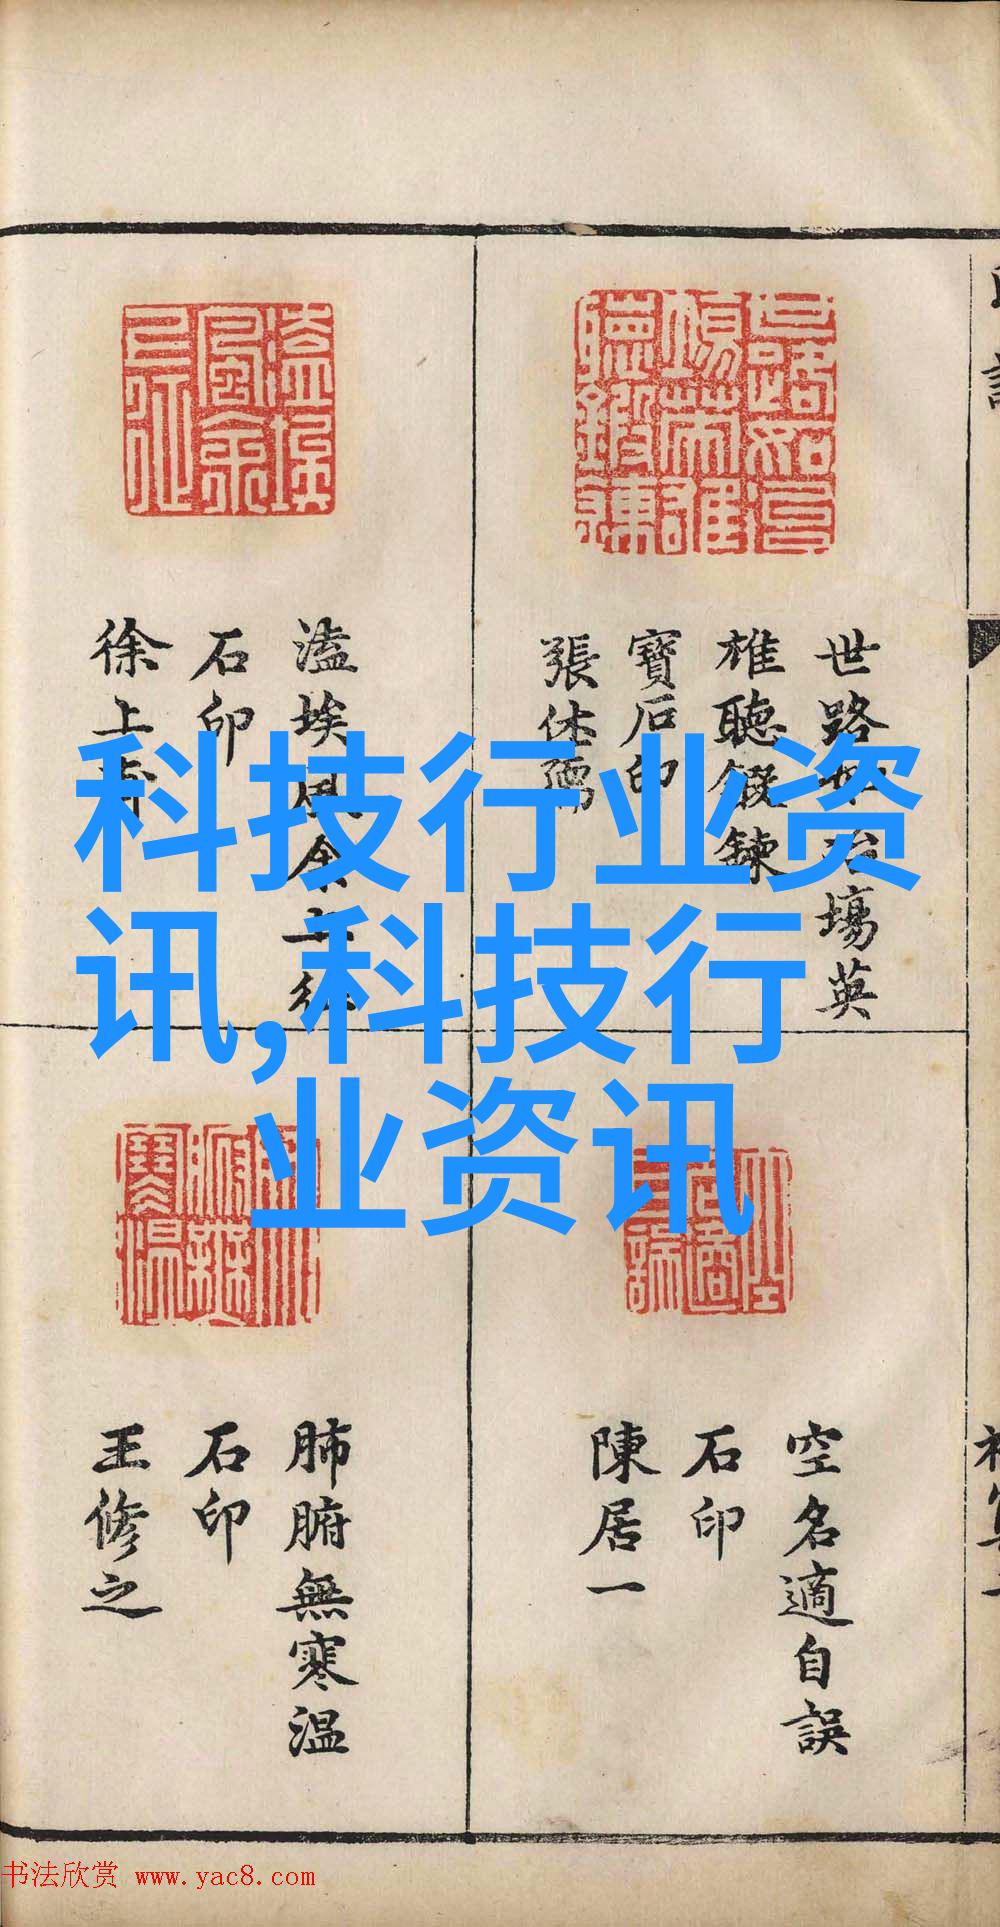 世路如冶場英
雄聽鍛鍊
寶石印
張休孺
溘埃風余上征
石印
徐上
科技行业资
讯,科技行
业资讯
空名適自誤
石印
陳居一
肺腑無寒温
石印
王修之
书法欣赏 www.yac8.com